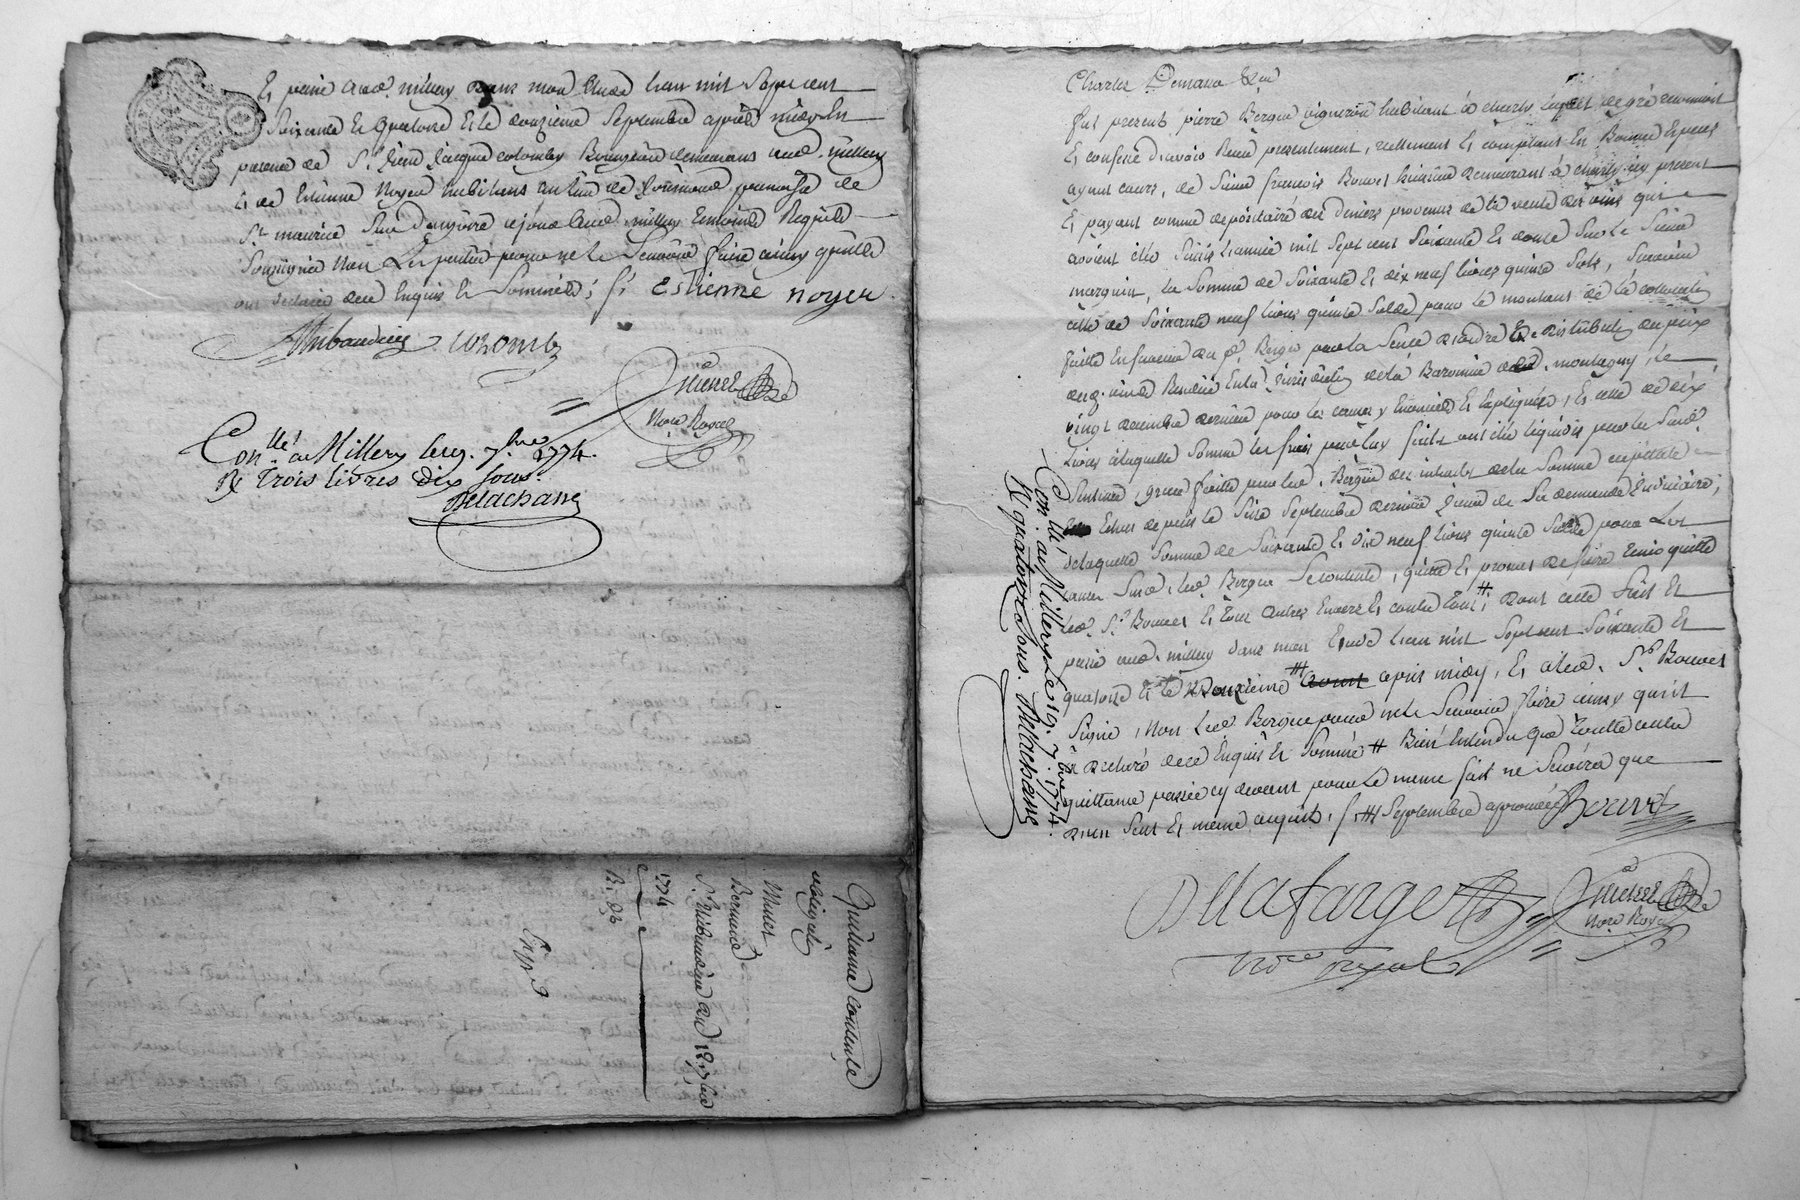 Et passé aud. millery dans mon Etude L'an mil sept cent
Soixante Et Quatorze Et le douzieme Septembre après midy En
presence de Sr. Jacques colomby Bourgeois demeurant aud. millery
Et de Estienne Noyer habitans au lieu de paroisse de
St. maurice Sur dargoire Led. millery temoins Requis
Soussignés Non Les parties pour ne le Sçavoir faire ainsy qu'elles
ont déclaré de ce Enquis Et Sommées; Estienne noyer
Thibaudier colomby
Not.re Royal
Con.llé à Millery le 19. 7.bre 1774.
R. Trois livres dix sous.
Delachassa
Quittance contente
obligée
Mulet
Bernard
Sr. Thibaudier du 12 7bre
1774
Expd
Charles
fut present pierre Bergue vigneron habitant à charly Lequel de gré reconnoit
Et confesse d'avoir Reçu presentement, réellement Et comptant En Bonnes Especes
ayant cours, de Sieur françois Bouvet huissier demeurant à charly icy present
Et payant comme dépositaire des deniers provenus de la vente des vins qui
avoient été Saisis L'année mil sept cent Soixante Et douze Sur le Sieur
marquis, La Somme de Soixante Et dix neuf livres quinze Sols, Sçavoir
celle de Soixante neuf livres quinze Sols pour le montant de la
faitte En faveur dud. Bergue par la Sentence d'ordre Et distribution du prix
desd. vins Rendüe En la Jurisdiction de la Baronnie de montagny, le
vingt decembre dernier pour les causes y Enoncées Et Expliquées, Et celle de dix
Livres à laquelle Somme les frais par luy faits ont été liquidés par lad.
Sentence, grace faitte par led. Bergue des interets de la Somme capitale
Echus depuis le Seize Septembre dernier jour de Sa demande Judiciaire;
de laquelle Somme de Soixante Et dix neuf livres quinze Sols pour Les
causes Susd. Led. Bergue Se contente, quitte Et promet de faire tenir quitte
led. Sr. Bouvet Et tous autres Envers Et contre tous # ; Dont acte Fait Et
passé aud. millery dans mon Etude L'an mil Sept cent Soixante Et
quatorze Et le Douzieme # avant après midy, Et a led. Sr. Bouvet
Signé, Non Led. Bergue pour ne le Sçavoir faire ainsy qu'il
a déclaré de ce Enquis Et Sommé # Bien Entendu que toutte autre
quittance passée cy devant pour le meme fait ne Servira que
d'un Seul Et meme acquit, # Septembre approuvé Bouvet
Dellafarge
Not.re Royal
no.re royal
Con.llé à Millery le 19. 7.bre 1774.
R. quatorze sous. Delachassa